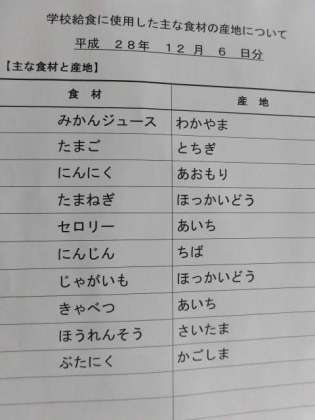 学校給食に使用した主な食材の産地について
平成 28年 12 月 6 日分
【主な食材と産地】
食 材 産 地
みかんジュース わかやま
たまご とちぎ
にんにく あおもり
たまねぎ ほっかいどう
セロリー あいち
にんじん ちば
じゃがいも ほっかいどう
きゃべつ あいち
ほうれんそう さいたま
ぶたにく かごしま